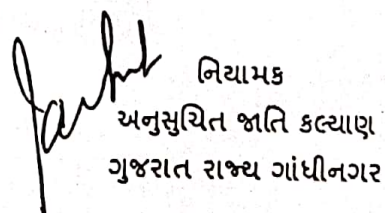 નિયામક
અનુસુચિત જાતિ કલ્યાણ
ગુજરાત રાજ્ય ગાંધીનગર